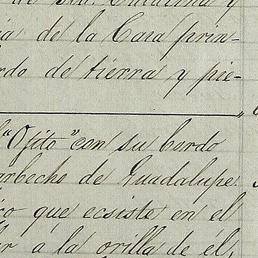 de Sta. Catarina y
de la Casa prin-
do de tierra y pie-
"Ojito" con su bordo
de Guadalupe
que ecsiste en el
a la orilla de el,